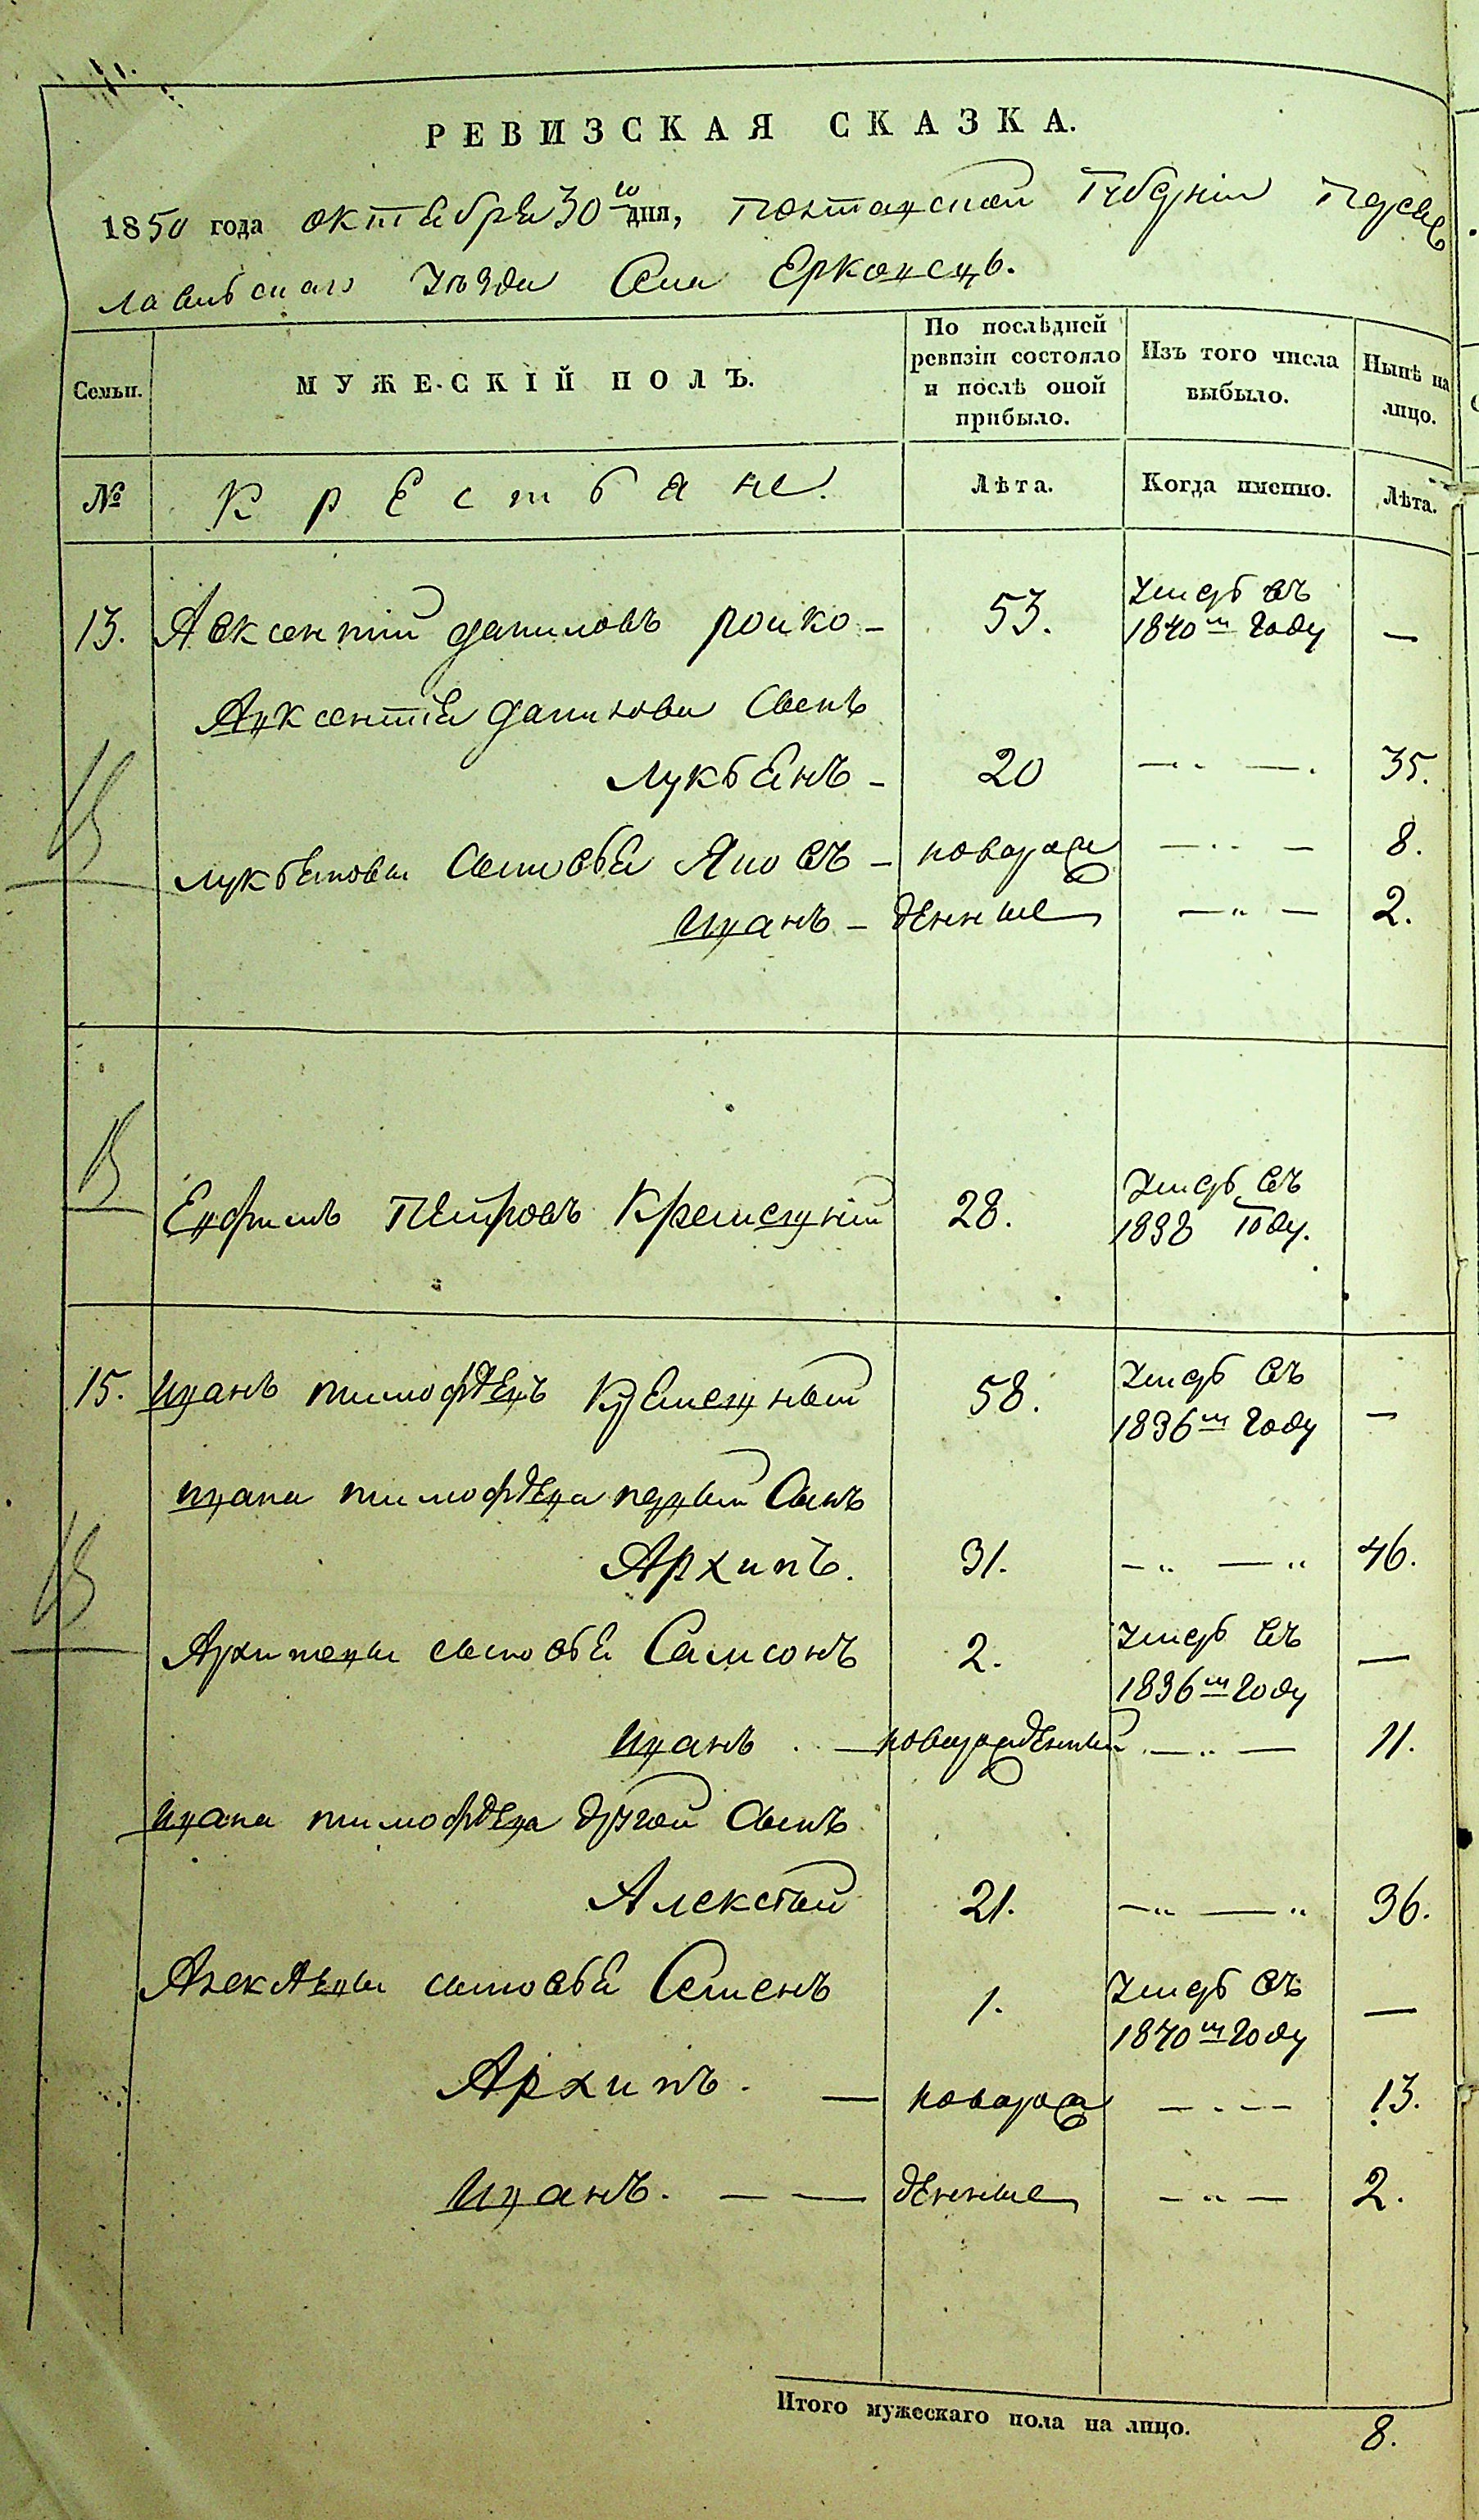 РЕВИЗСКАЯ СКАЗКА.
1850 года октября 30го дня, Полтавской Губерніи Переяс
лавского Уѣзда Села Ерковецъ.
Семьи.
МУЖЕСКІЙ ПОЛЪ.
По послѣдней ревизіи состояло и послѣ оной прибыло.
Изъ того числа выбыло.
Нынѣ на лицо.
№ Крестьяне. Лѣта. Когда именно. Лѣта.
13. Авксентій Даниловъ Ройко – 53. Умеръ въ 1840м году —
Авксентія Данилова Сынъ
Лукьянъ – 20 —.. —. 35.
Лукьяновы Сыновья Яковъ – новорож —.. — 8.
Иванъ – денные —„ — 2.
Евфимъ Петровъ Кремезний 28. Умеръ въ 1838 году.
15. Иванъ Тимофѣевъ Кремезный 58. Умеръ въ 1836м году —
Ивана Тимофѣева первый Сынъ
Архипъ. 31. —„ —„ 46.
Архиповы сыновья Самсонъ 2. Умеръ въ 1836м году —
Иванъ — новорожденный —„ — 11.
Ивана Тимофѣева другой Сынъ
Алексѣй 21. —„ —„ 36.
Алексѣевы сыновья Семенъ 1. Умеръ въ 1840м году —
Архипъ. — новорож —.— 13.
Иванъ. — — денные —„ — 2.
Итого мужескаго пола на лицо. 8.